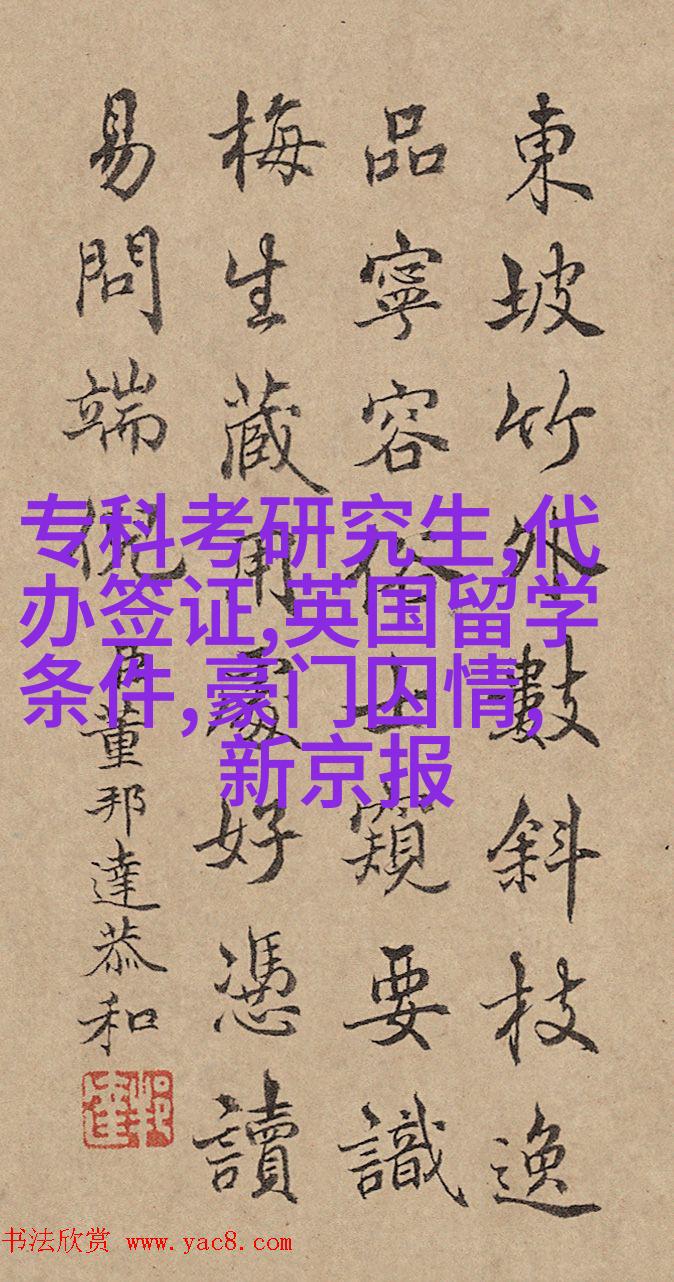 東坡竹外數斜枝逸
品寧容俗士窺要識
梅生藏用處好憑讀
易問端倪
臣董邦達恭和
专科考研究生,代
办签证,英国留学
条件,豪门囚情,
新京报
书法欣赏 www.yac8.com